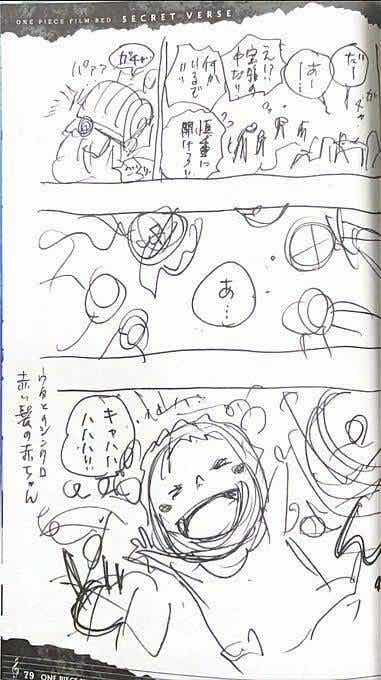 ONE PIECE FILM RED SECRET VERSE
だー
あー…
ガチャ
え!?
宝箱の
中から
何か
いるぞ
慎重に
開けろ!!
ガチャ
パアア
あ…
キャハハ
ハハハ!!
赤い髪の赤ちゃん
79 ONE PIECE